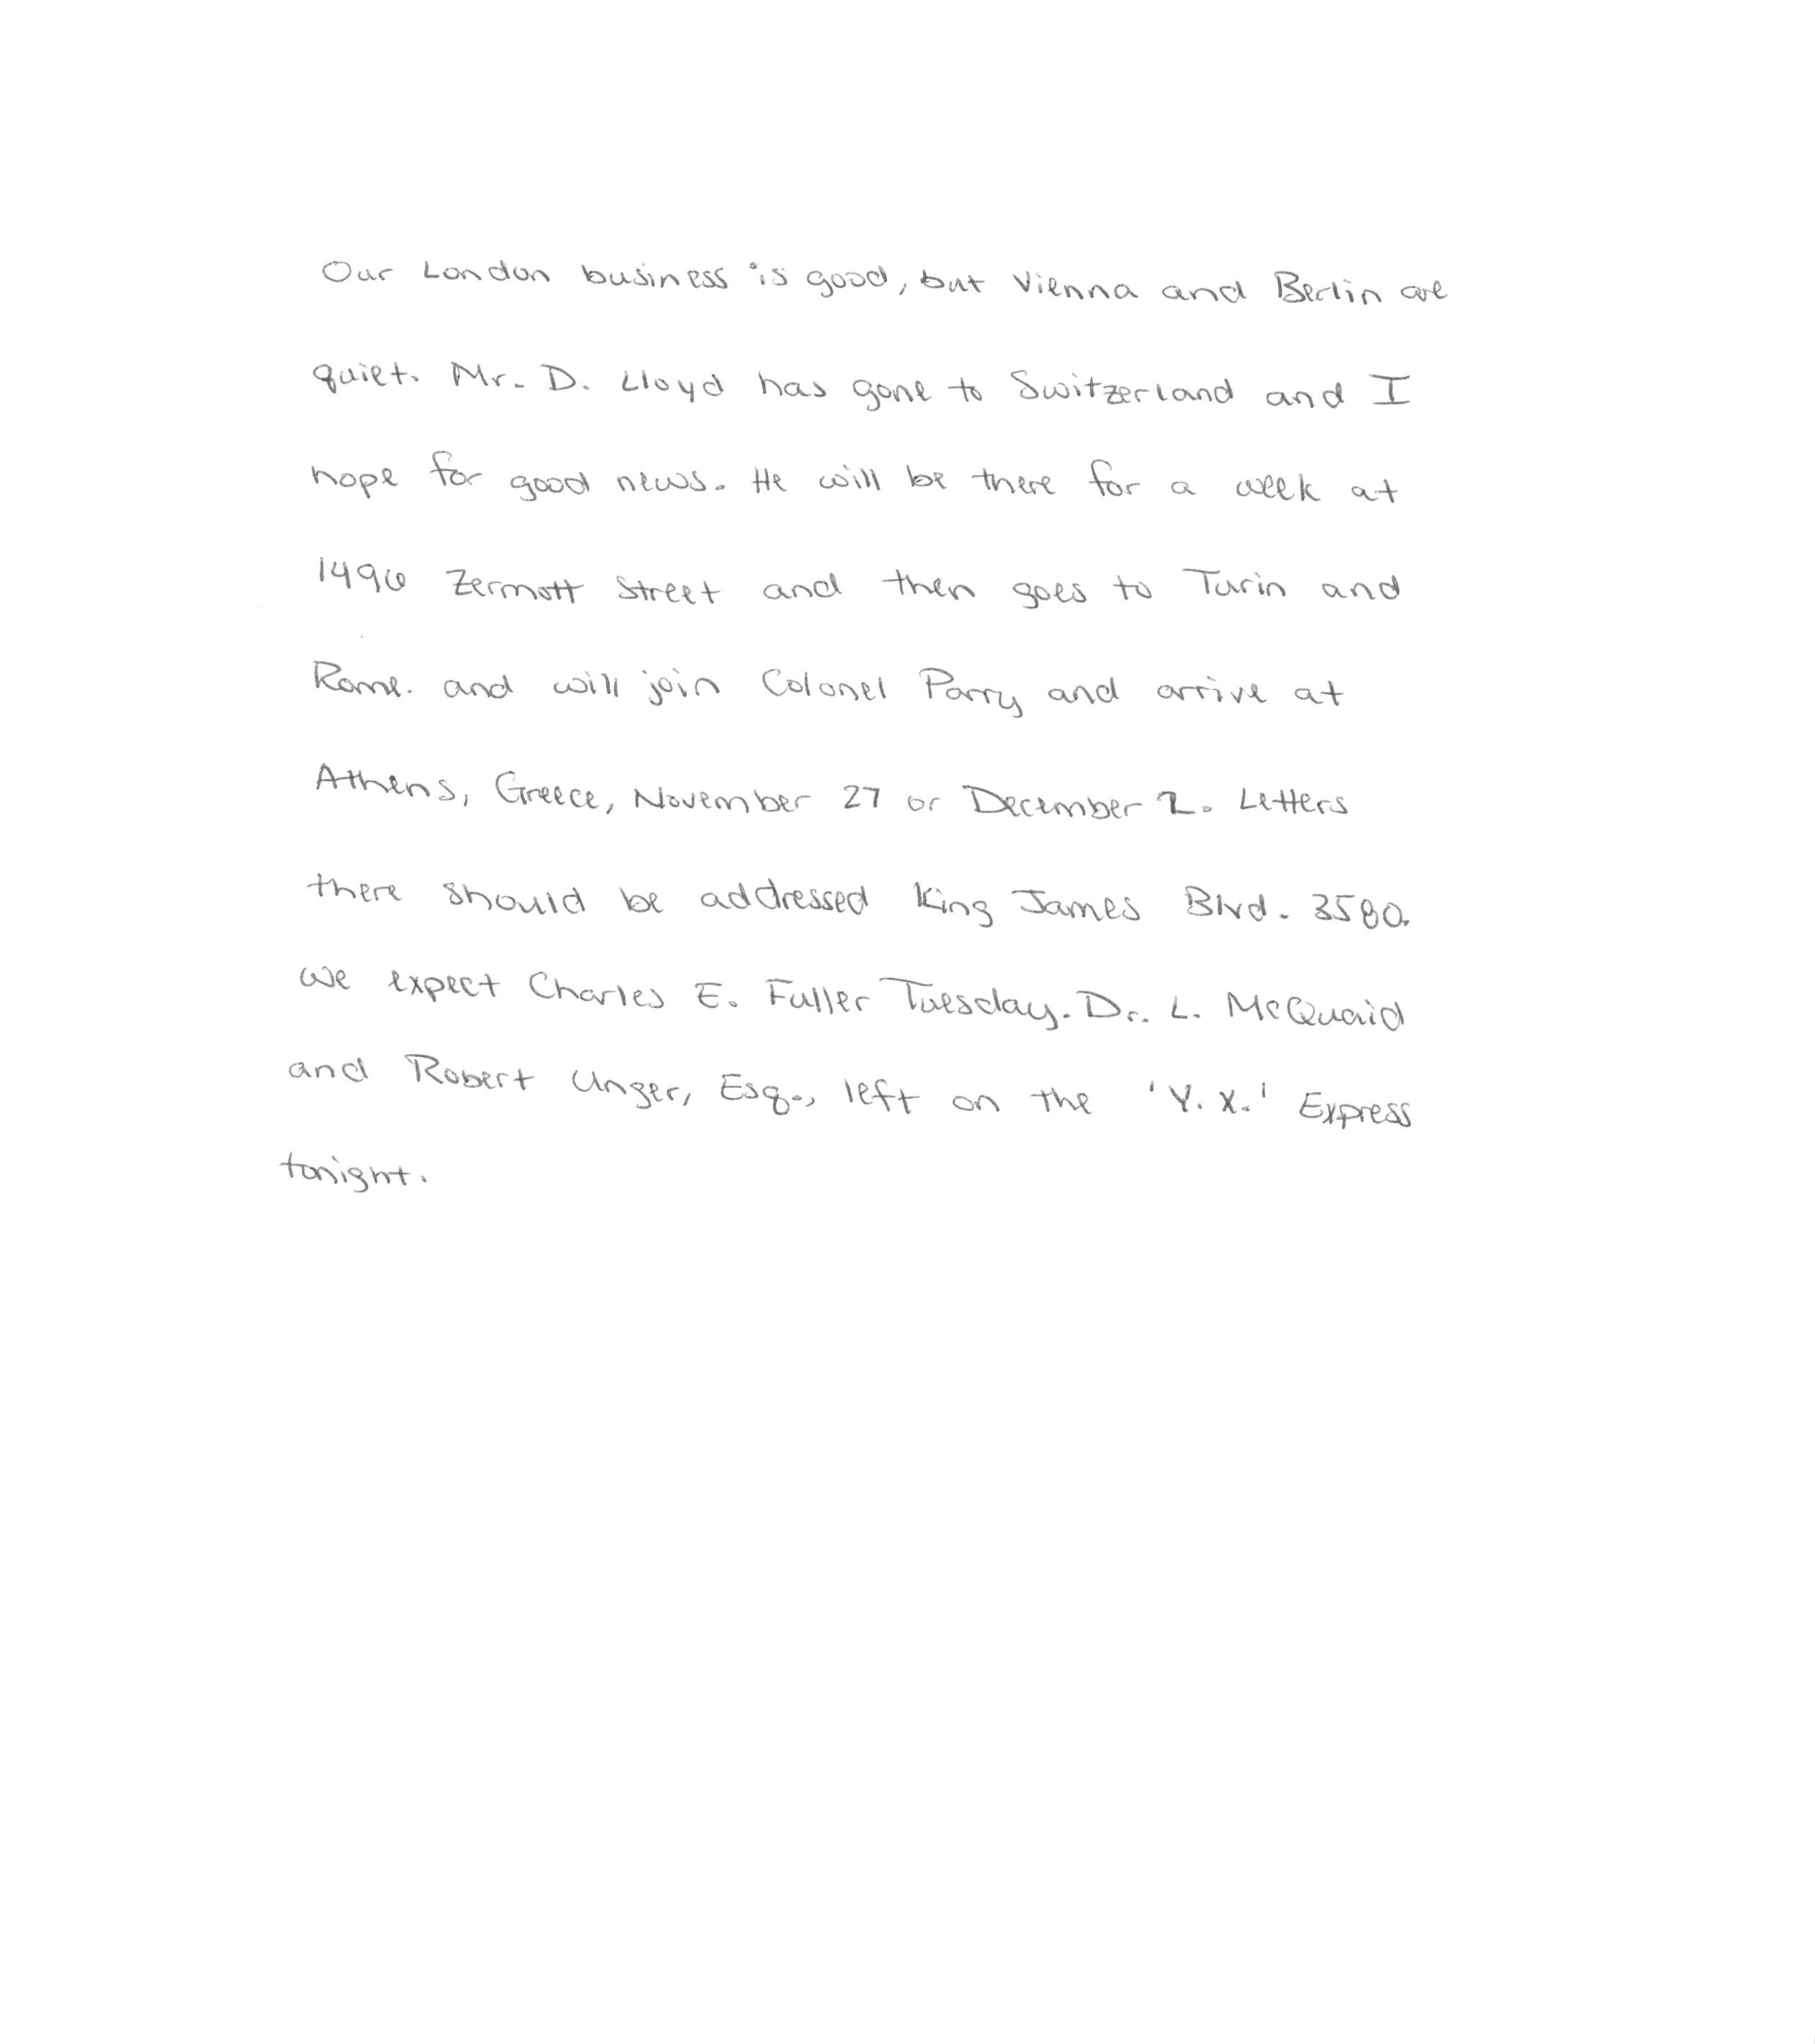 Our London business is good, but Vienna and Berlin are
quiet. Mr. D. Lloyd has gone to Switzerland and I
hope for good news. He will be there for a week at
1496 Zermott Street and then goes to Turin and
Rome. and will join Colonel Parry and arrive at
Athens, Greece, November 27 or December 2. Letters
there should be addressed King James Blvd. 3580.
We expect Charles E. Fuller Tuesday. Dr. L. McQuaid
and Robert Unger, Esq., left on the 'Y. X.' Express
tonight.